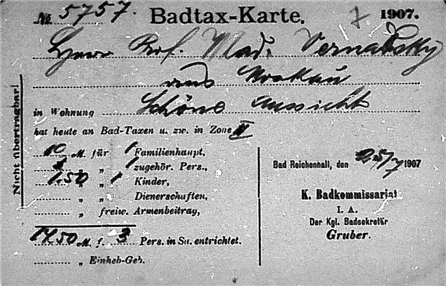 № 5757. Badtax-Karte. 1907.
Herr Prof. Wlad. Vernadsky
aus Moskau
in Wohnung Schöne Aussicht
hat heute an Bad-Taxen u. zw. in Zone II
10 M. für 1 Familienhaupt,
„ „ 1 zugehör. Pers.,
1.50 „ „ 1 Kinder,
„ „ Dienerschaften,
„ freiw. Armenbeitrag,
M. f. 3 Pers. in Sa. entrichtet.
„ Einheb-Geb.
Nicht übertragbar!
Bad Reichenhall, den 25/7 1907
K. Badkommissariat
I. A.
Der Kgl. Badsekretär
Gruber.